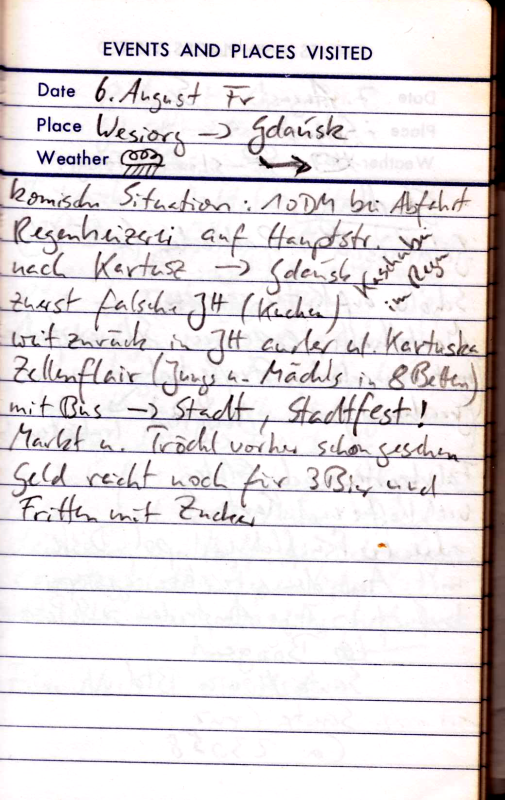 EVENTS AND PLACES VISITED
Date 6. August Fr
Place Wesiory → Gdańsk
Weather →
komische Situation: 10DM bei Abfahrt
Regenheizerei auf Hauptstr.
nach Kartusz → Gdańsk
im Regen
zuerst falsche JH (Kuchen)
weit zurück in JH an der ul. Kartuska
Zellenflair (Jungs u. Mädels in 8 Betten)
mit Bus → Stadt, Stadtfest!
Markt u. Trödel vorher schon gesehen
Geld reicht noch für 3 Bier und
Fritten mit Zucker